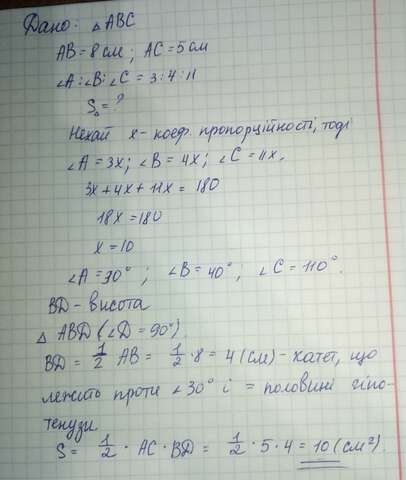 Дано: △ABC
AB = 8 см; AC = 5 см
∠A:∠B:∠C = 3:4:11
S△ = ?
Нехай x - коеф. пропорційності, тоді
∠A = 3x; ∠B = 4x; ∠C = 11x,
3x + 4x + 11x = 180
18x = 180
x = 10
∠A = 30°; ∠B = 40°; ∠C = 110°.
BD - висота
△ABD (∠D = 90°).
BD = 1/2 AB = 1/2 · 8 = 4 (см) - катет, що
лежить проти ∠30° і = половині гіпо-
тенузи.
S = 1/2 · AC · BD = 1/2 · 5 · 4 = 10 (см²).